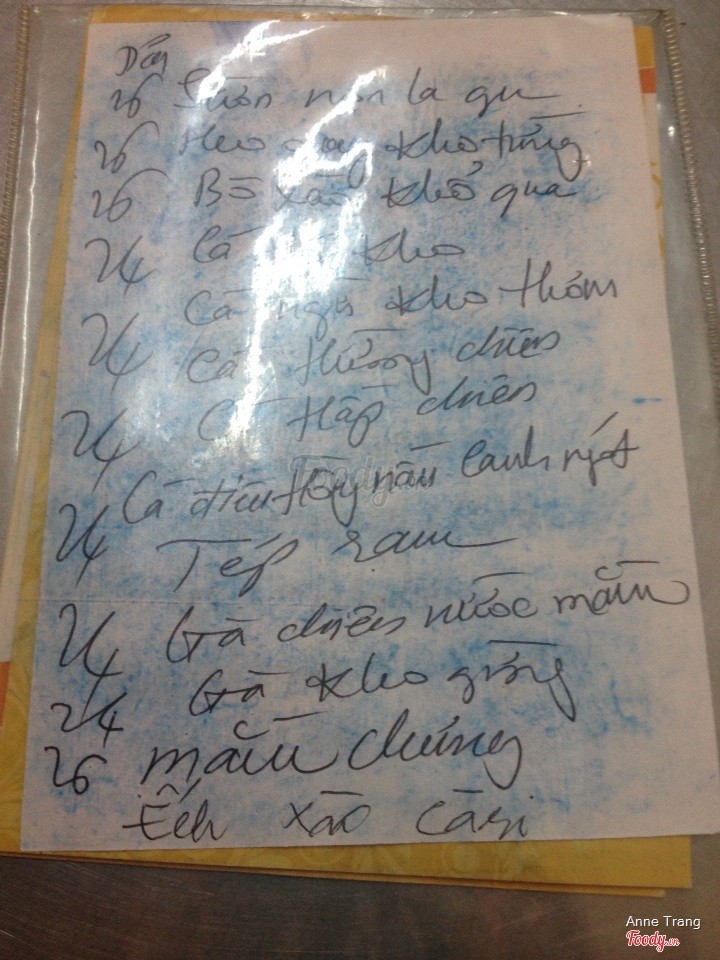 26 Sườn non la gu
26 Heo quay kho trứng
26 Bò xào khổ qua
24 Cá kho
Cá ngừ kho thơm
24 Cá chiên
24 Cá chiên
Cá nấu canh ngót
24 Tép ram
24 Gà chiên nước mắm
24 Gà kho gừng
26 mắm chưng
Ếch xào cà ri
Foody.vn
Anne Trang
Foody.vn